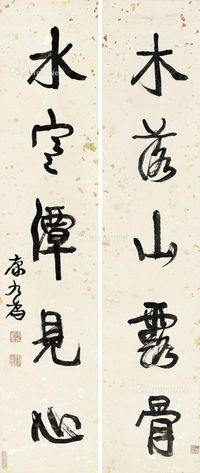 木落山露骨
水定潭見心
康有為